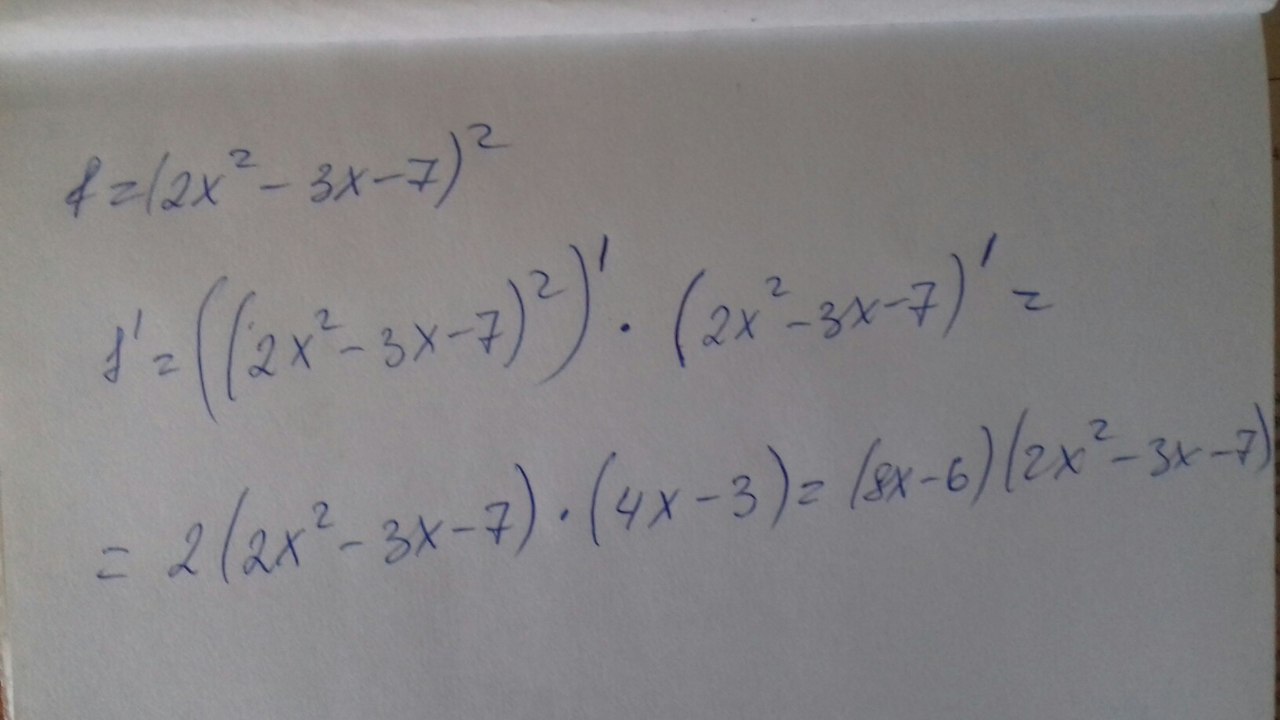 f=(2x²-3x-7)²
f'=((2x²-3x-7)²)'·(2x²-3x-7)'=
=2(2x²-3x-7)·(4x-3)=(8x-6)(2x²-3x-7)